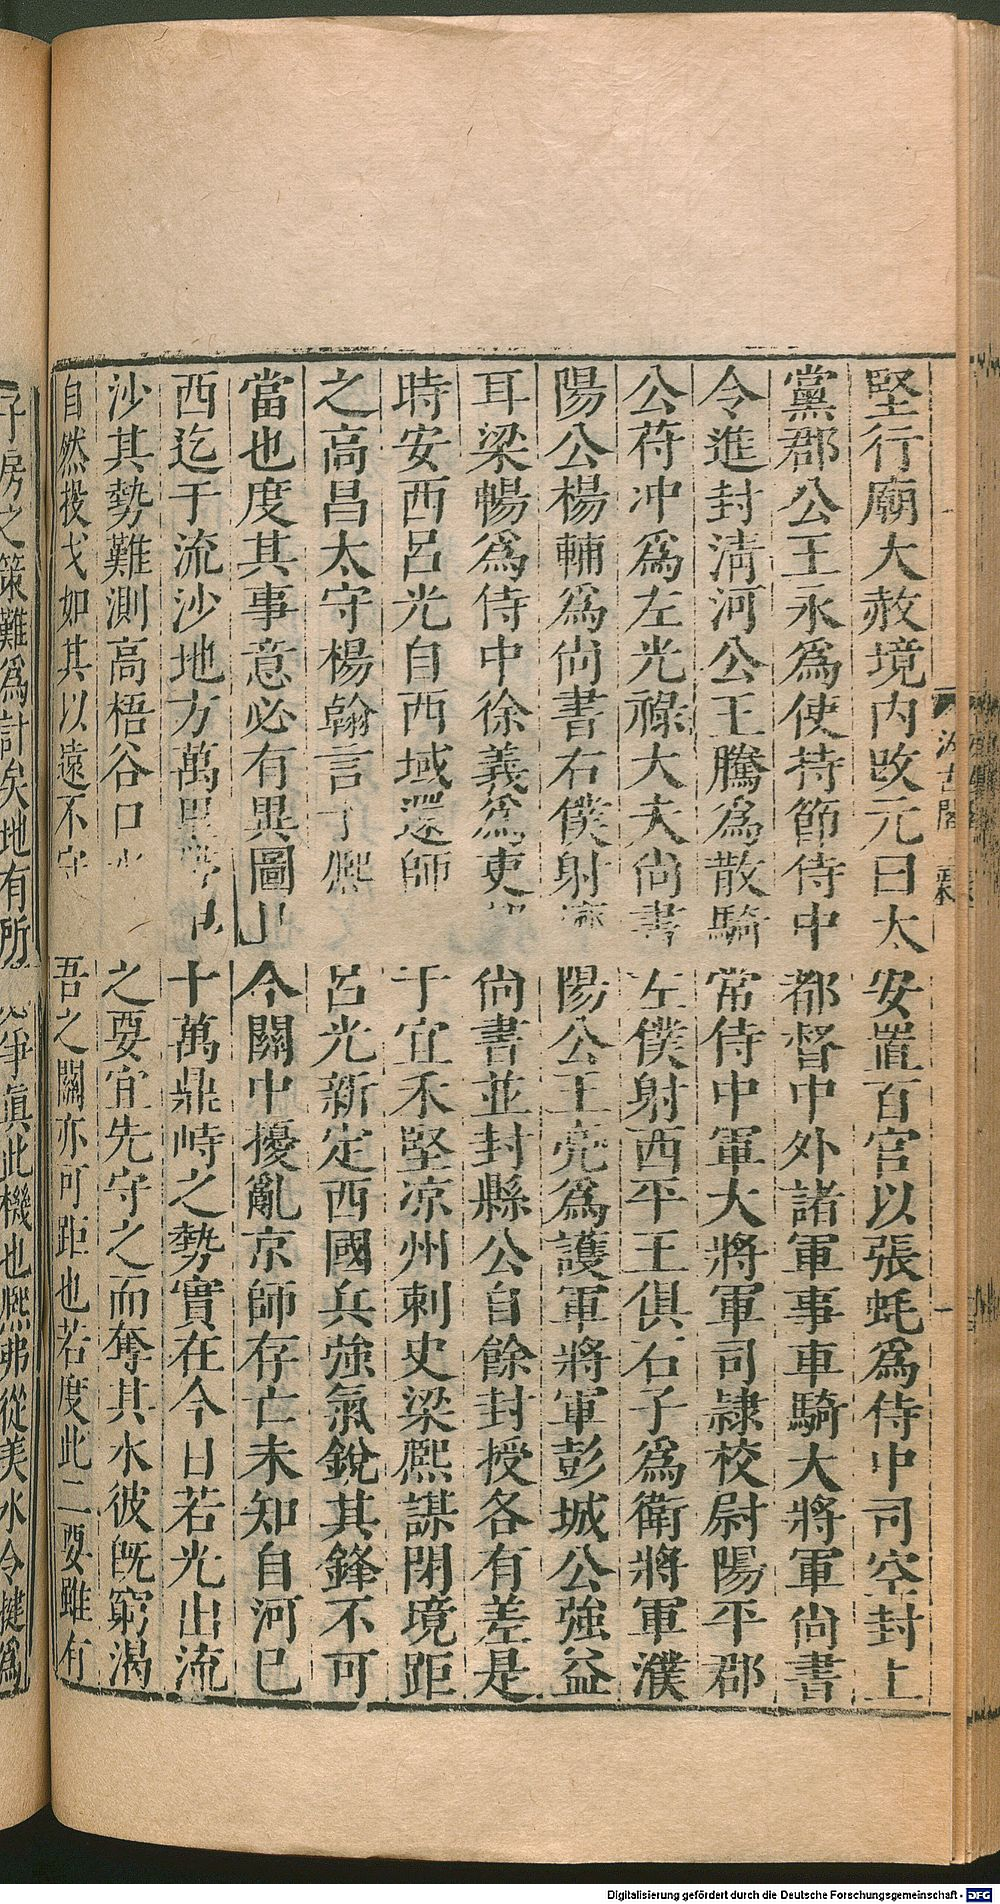 堅行廟大赦境内改元曰太安置百官以張蚝爲侍中司空封上
黨郡公王永爲使持節侍中都督中外諸軍事車騎大將軍尚書
令進封清河公王騰爲散騎常侍中軍大將軍司隷校尉陽平郡
公苻冲爲左光祿大夫尚書左僕射西平王俱石子爲衛將軍濮
陽公楊輔爲尚書右僕射濟陽公王亮爲護軍將軍彭城公強益
耳梁暢爲侍中徐義爲吏部尚書並封縣公自餘封授各有差是
時安西呂光自西域還師于宜禾堅凉州刺史梁熙謀閉境距
之高昌太守楊翰言于熙呂光新定西國兵強氣銳其鋒不可
當也度其事意必有異圖且今關中擾亂京師存亡未知自河已
西迄于流沙地方萬里帶甲十萬鼎峙之勢實在今日若光出流
沙其勢難測高梧谷口水之要宜先守之而奪其水彼既窮渴
自然投戈如其以遠不守吾之關亦可距也若度此二要雖有
子房之策難爲計矣地有所必爭真此機也熙弗從美水令犍爲
汲古閣
Digitalisierung gefördert durch die Deutsche Forschungsgemeinschaft - DFG